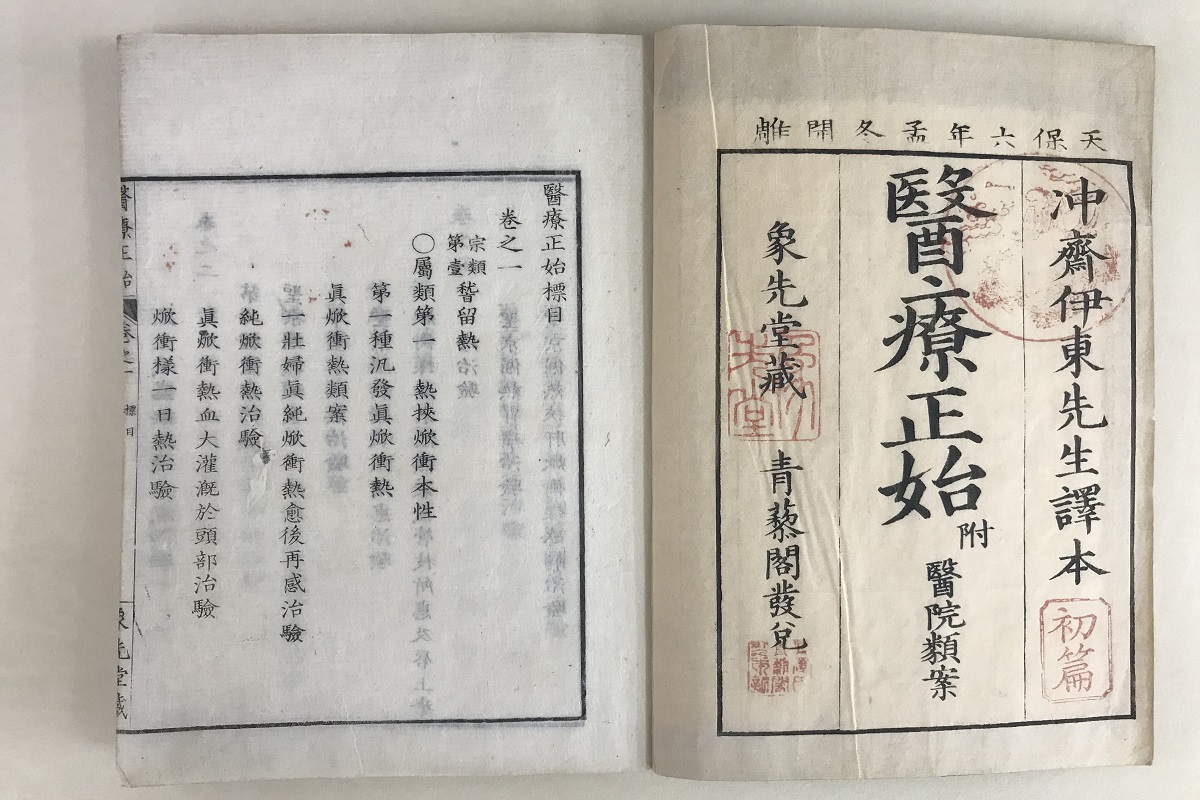 天保六年孟冬開雕
冲齋伊東先生譯本
初篇
醫療正始
附
醫院類案
象先堂藏
青藜閣發兌
醫療正始標目
卷之一
宗類第壹
稽留熱治驗
○屬類第一 熱挾焮衝本性
第一種汎發眞焮衝熱
眞焮衝熱類案
一壯婦眞純焮衝熱愈後再感治驗
純焮衝熱治驗
眞焮衝熱血大灌漑於頭部治驗
焮衝樣一日熱治驗
醫療正始
卷之一
標目
象先堂藏